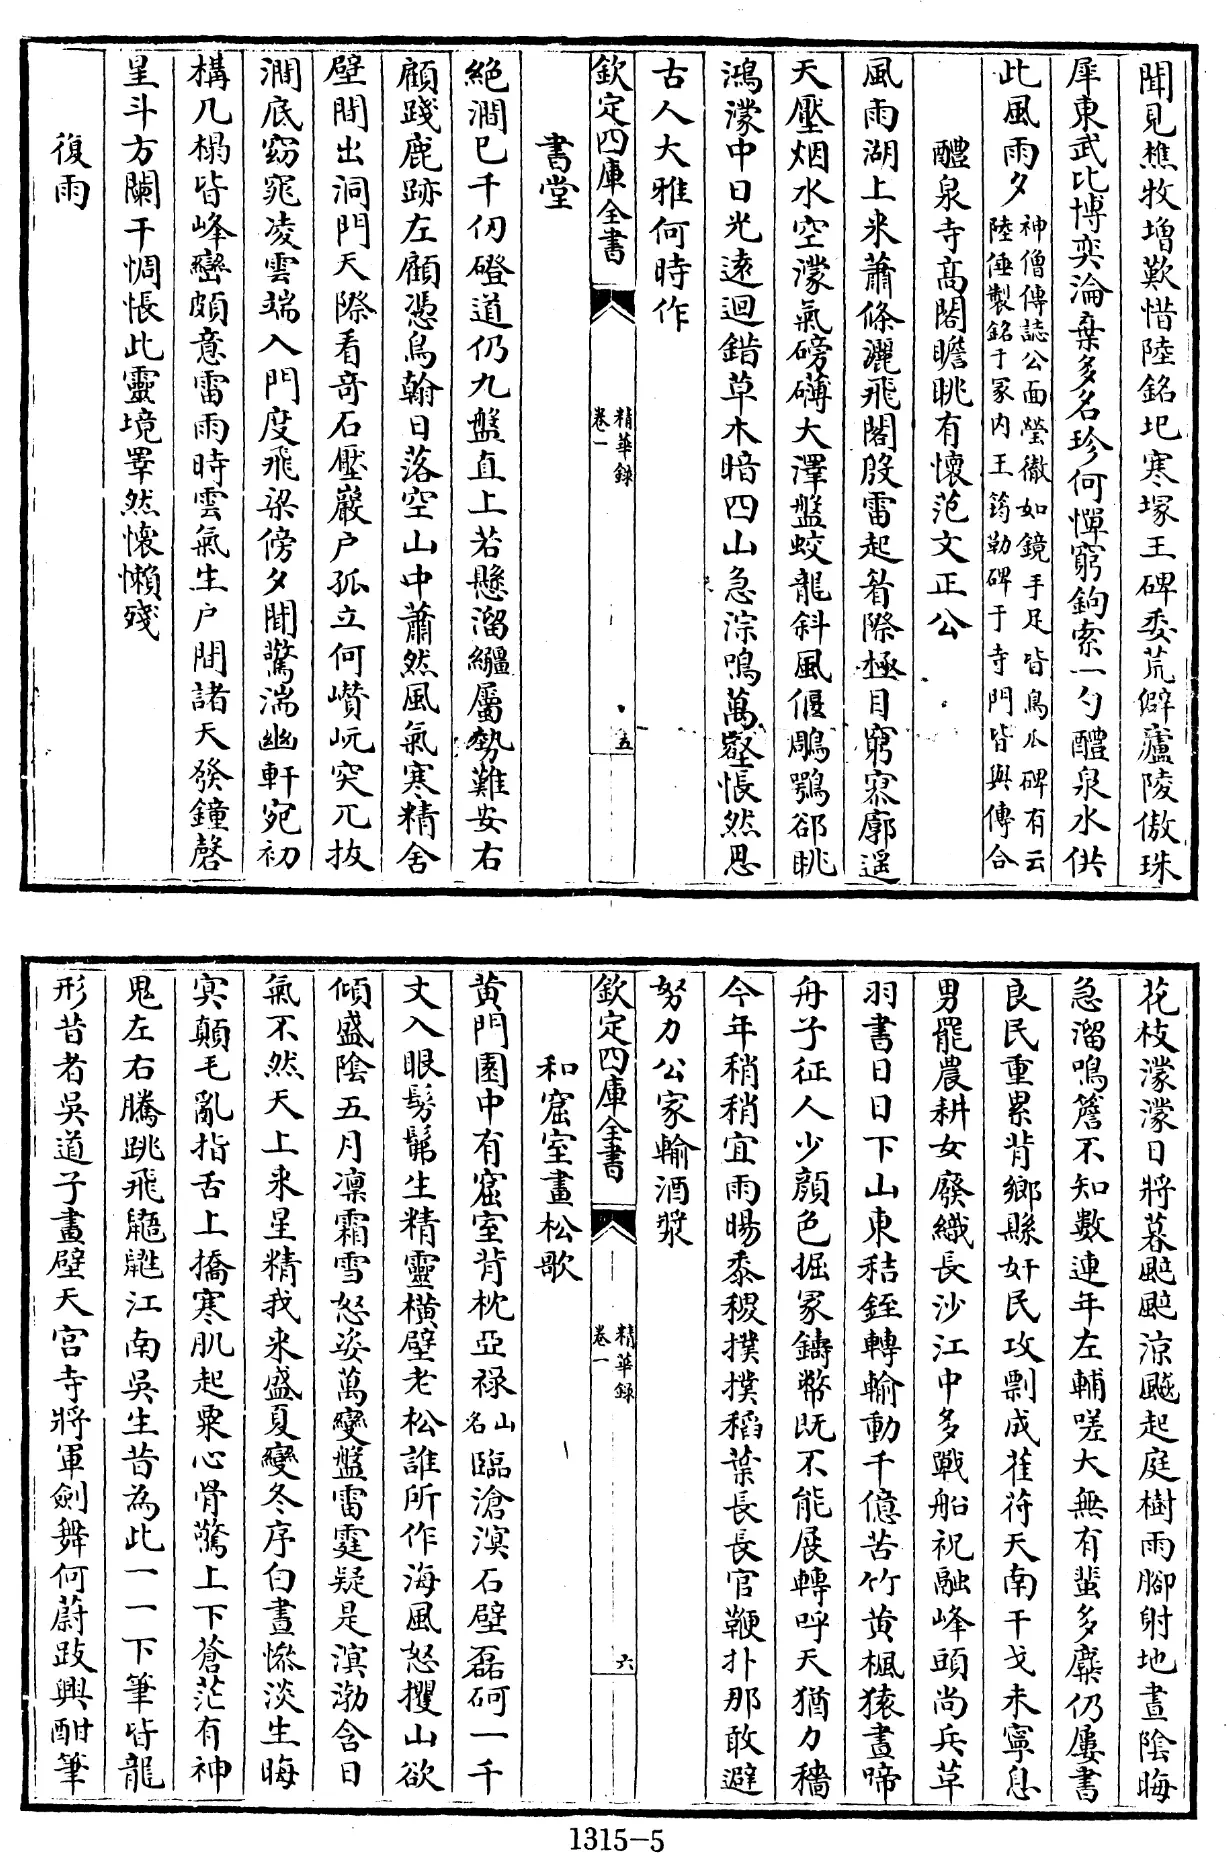 聞見樵牧増歎惜陸銘圯寒塚王碑委荒僻廬陵傲珠
犀東武比博奕淪棄多名珍何憚窮鉤索一勺醴泉水供
此風雨夕神僧傳誌公面瑩徹如鏡手足皆鳥爪碑有云
陸倕製銘于冢内王筠勒碑于寺門皆與傳合
醴泉寺高閣瞻眺有懷范文正公
風雨湖上来蕭條灑飛閣殷雷起眢際極目窮寥廓遥
天壓烟水空濛氣磅礴大澤盤蛟龍斜風偃鵰鶚郤眺
鴻濛中日光遠迴錯草木暗四山急淙鳴萬壑悵然思
古人大雅何時作
欽定四庫全書
精華録
卷一
五
書堂
絶澗已千仞磴道仍九盤直上若懸溜繼屬勢難安右
顧踐鹿跡左顧憑鳥翰日落空山中蕭然風氣寒精舍
壁間出洞門天際看竒石壓巖户孤立何巑岏突兀拔
澗底窈窕凌雲端入門度飛梁傍夕聞驚湍幽軒宛初
構几榻皆峰巒頗意雷雨時雲氣生户間諸天發鐘磬
星斗方闌干惆悵此靈境睪然懐懶殘
復雨
花枝濛濛日將暮颭颭凉飈起庭樹雨腳射地晝陰晦
急溜鳴簷不知數連年左輔嗟大無有蜚多麋仍屢書
良民重累背鄉縣奸民攻剽成萑苻天南干戈未寧息
男罷農耕女廢織長沙江中多戰船祝融峰頭尚兵革
羽書日日下山東秸銍轉輸動千億苦竹黄楓猿晝啼
舟子征人少顔色掘冢鑄幣既不能展轉呼天猶力穡
今年稍稍宜雨暘黍稷撲撲稻葉長長官鞭扑那敢避
努力公家輸酒漿
欽定四庫全書
精華録
卷一
六
和窟室畫松歌
黄門園中有窟室背枕亞禄山名臨滄溟石壁磊砢一千
丈入眼髣髴生精靈横壁老松誰所作海風怒攫山欲
傾盛陰五月凛霜雪怒姿萬變盤雷霆疑是溟渤含日
氣不然天上来星精我来盛夏變冬序白晝慘淡生晦
冥顛毛亂指舌上撟寒肌起粟心骨驚上下蒼茫有神
鬼左右騰跳飛鼯鼪江南吳生昔為此一一下筆皆龍
形昔者吳道子畫壁天宫寺將軍劍舞何蔚跂興酣筆
1315-5